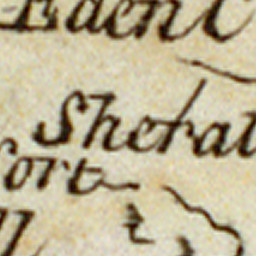 Eden C
Sheral
Fort